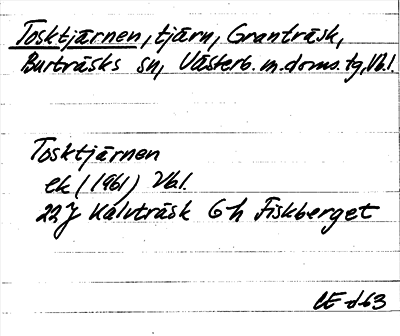 Tosktjärnen, tjärn, Granträsk,
Burträsks sn, Västerb. m. doms. tg, Vbl.
Tosktjärnen
ek (1961) Vbl.
22J Kalvträsk 6h Fiskberget